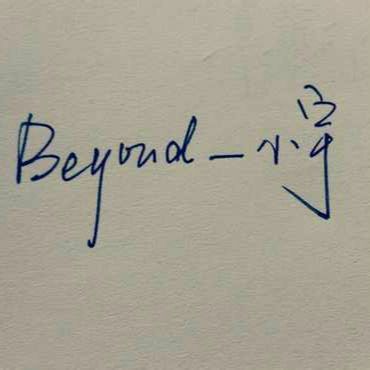 Beyond-小宇